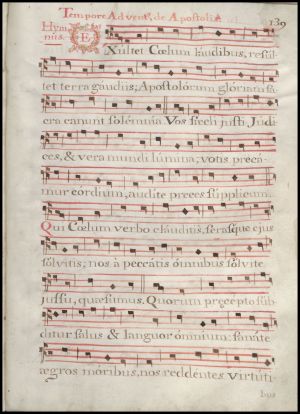 Tempore Advent9, de Apostolis
139
Hym-
nus.
EXultet Cœlum laudibus, resul-
tet terra gaudiis; Apostolórum glóriam sa-
cra canunt solémnia. Vos sæcli justi Judi-
ces, & vera mundi lúmina; votis precá-
mur córdium, audíte preces súpplicum.
Qui Cœlum verbo cláuditis, serasque ejus
sólvitis; nos à peccátis ómnibus sólvite
jussu, quæsumus. Quorum præcepto súb-
ditur salus & languor ómnium: sanáte
ægros móribus, nos reddéntes virtúti-
bus